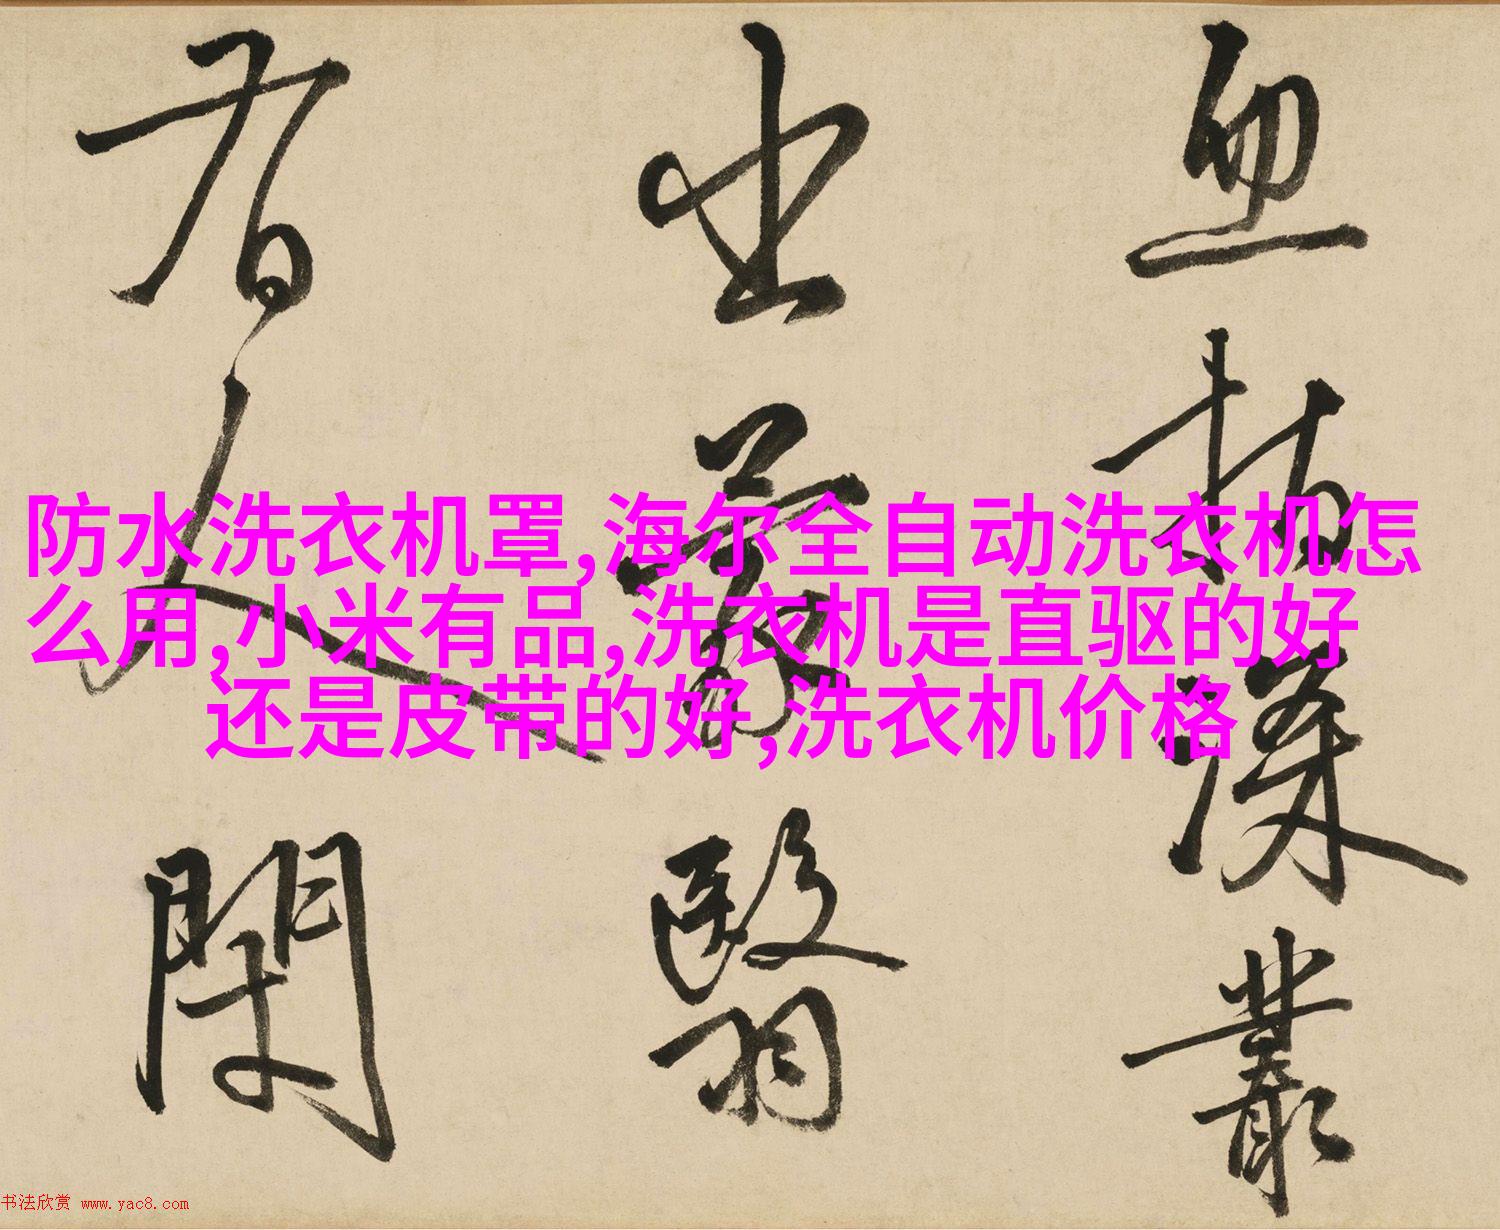 防水洗衣机罩,海尔全自动洗衣机怎
么用,小米有品,洗衣机是直驱的好
还是皮带的好,洗衣机价格
深叢
出蒙翳
人
书法欣赏 www.yac8.com